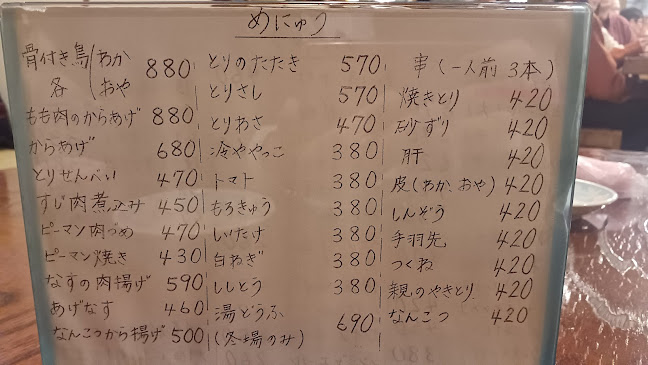 めにゅう
骨付き鳥(わか
各(おや 880
もも肉のからあげ 880
からあげ 680
とりせんべい 470
すじ肉煮込み 450
ピーマン肉づめ 470
ピーマン焼き 430
なすの肉揚げ 590
あげなす 460
なんこつから揚げ 500
とりのたたき 570
とりさし 570
とりわさ 470
冷ややっこ 380
トマト 380
もろきゅう 380
しいたけ 380
白ねぎ 380
ししとう 380
湯どうふ
(冬場のみ) 690
串(一人前 3本)
焼きとり 420
砂ずり 420
肝 420
皮(わか、おや) 420
しんぞう 420
手羽先 420
つくね 420
親のやきとり 420
なんこつ 420